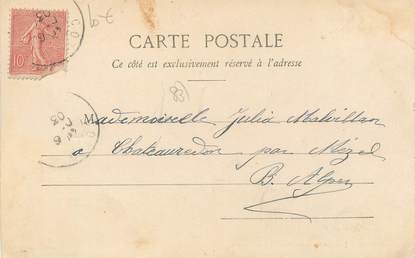 CARTE POSTALE
Ce côté est exclusivement réservé à l'adresse
(83)
Mademoiselle Julia
a Chateauredon par Mézel
B. Alpes
10
03
03